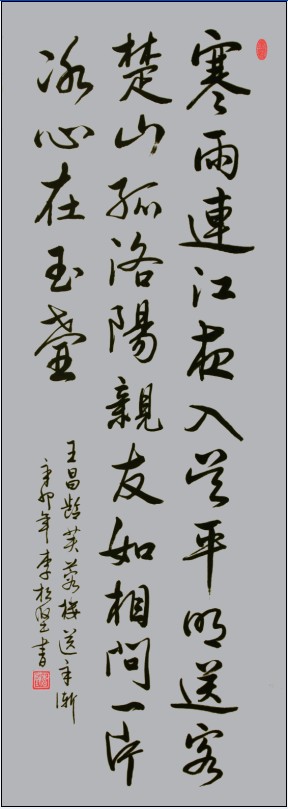 寒雨連江夜入吳平明送客
楚山孤洛陽親友如相問一片
冰心在玉壺
王昌齡芙蓉樓送辛漸
辛卯年李松堅書